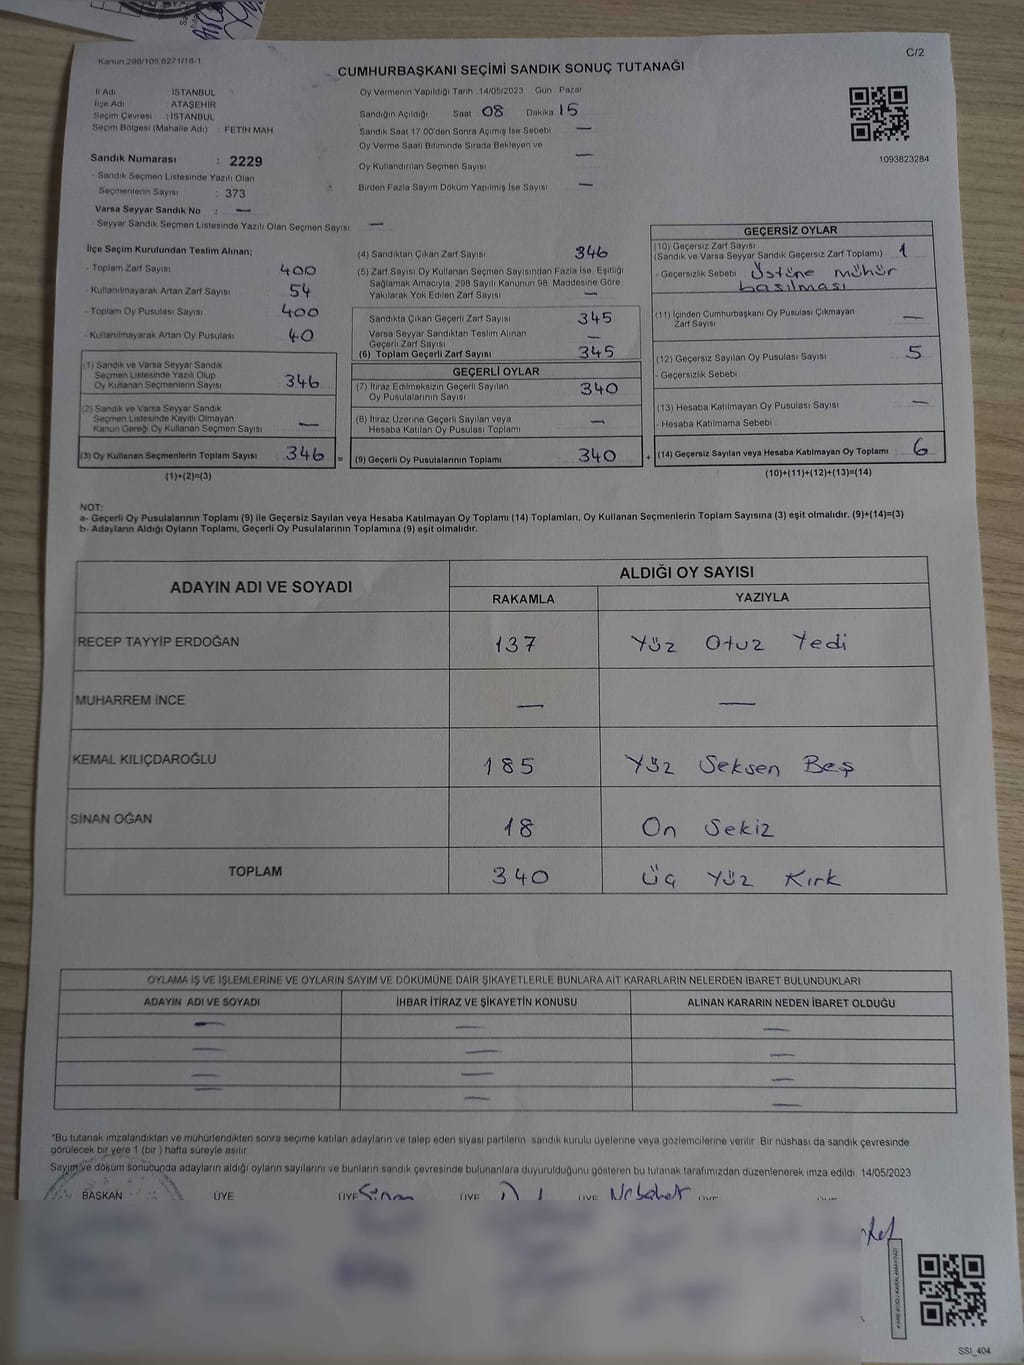 Kanun:298/105,6271/18-1
C/2
CUMHURBAŞKANI SEÇİMİ SANDIK SONUÇ TUTANAĞI
İl Adı İSTANBUL
İlçe Adı ATAŞEHİR
Seçim Çevresi : İSTANBUL
Seçim Bölgesi (Mahalle Adı) : FETİH MAH
Sandık Numarası : 2229
Sandık Seçmen Listesinde Yazılı Olan
Seçmenlerin Sayısı : 373
Varsa Seyyar Sandık No : —
Seyyar Sandık Seçmen Listesinde Yazılı Olan Seçmen Sayısı —
Oy Vermenin Yapıldığı Tarih :14/05/2023 Gün Pazar
Sandığın Açıldığı Saat 08 Dakika 15
Sandık Saat 17:00'den Sonra Açılmış İse Sebebi —
Oy Verme Saati Bitiminde Sırada Bekleyen ve
Oy Kullandırılan Seçmen Sayısı —
Birden Fazla Sayım Döküm Yapılmış İse Sayısı —
1093823284
İlçe Seçim Kurulundan Teslim Alınan;
- Toplam Zarf Sayısı 400
- Kullanılmayarak Artan Zarf Sayısı 54
- Toplam Oy Pusulası Sayısı 400
- Kullanılmayarak Artan Oy Pusulası 40
(1) Sandık ve Varsa Seyyar Sandık
Seçmen Listesinde Yazılı Olup
Oy Kullanan Seçmenlerin Sayısı 346
(2) Sandık ve Varsa Seyyar Sandık
Seçmen Listesinde Kayıtlı Olmayan
Kanun Gereği Oy Kullanan Seçmen Sayısı —
(3) Oy Kullanan Seçmenlerin Toplam Sayısı 346 =
(1)+(2)=(3)
(4) Sandıktan Çıkan Zarf Sayısı 346
(5) Zarf Sayısı Oy Kullanan Seçmen Sayısından Fazla İse, Eşitliği
Sağlamak Amacıyla, 298 Sayılı Kanunun 98. Maddesine Göre
Yakılarak Yok Edilen Zarf Sayısı —
Sandıkta Çıkan Geçerli Zarf Sayısı 345
Varsa Seyyar Sandıktan Teslim Alınan
Geçerli Zarf Sayısı —
(6) Toplam Geçerli Zarf Sayısı 345
GEÇERLİ OYLAR
(7) İtiraz Edilmeksizin Geçerli Sayılan
Oy Pusulalarının Sayısı 340
(8) İtiraz Üzerine Geçerli Sayılan veya
Hesaba Katılan Oy Pusulası Toplamı —
(9) Geçerli Oy Pusulalarının Toplamı 340 +
GEÇERSİZ OYLAR
(10) Geçersiz Zarf Sayısı
(Sandık ve Varsa Seyyar Sandık Geçersiz Zarf Toplamı) 1
- Geçersizlik Sebebi Üstüne mühür
basılması
(11) İçinden Cumhurbaşkanı Oy Pusulası Çıkmayan
Zarf Sayısı —
(12) Geçersiz Sayılan Oy Pusulası Sayısı 5
- Geçersizlik Sebebi
(13) Hesaba Katılmayan Oy Pusulası Sayısı —
- Hesaba Katılmama Sebebi
(14) Geçersiz Sayılan veya Hesaba Katılmayan Oy Toplamı 6
(10)+(11)+(12)+(13)=(14)
NOT:
a- Geçerli Oy Pusulalarının Toplamı (9) ile Geçersiz Sayılan veya Hesaba Katılmayan Oy Toplamı (14) Toplamları, Oy Kullanan Seçmenlerin Toplam Sayısına (3) eşit olmalıdır. (9)+(14)=(3)
b- Adayların Aldığı Oyların Toplamı, Geçerli Oy Pusulalarının Toplamına (9) eşit olmalıdır.
ADAYIN ADI VE SOYADI ALDIĞI OY SAYISI
RAKAMLA YAZIYLA
RECEP TAYYİP ERDOĞAN 137 Yüz Otuz Yedi
MUHARREM İNCE — —
KEMAL KILIÇDAROĞLU 185 Yüz Seksen Beş
SİNAN OĞAN 18 On Sekiz
TOPLAM 340 Üç Yüz Kırk
OYLAMA İŞ VE İŞLEMLERİNE VE OYLARIN SAYIM VE DÖKÜMÜNE DAİR ŞİKAYETLERLE BUNLARA AİT KARARLARIN NELERDEN İBARET BULUNDUKLARI
ADAYIN ADI VE SOYADI İHBAR İTİRAZ VE ŞİKAYETİN KONUSU ALINAN KARARIN NEDEN İBARET OLDUĞU
— — —
— — —
— — —
— — —
*Bu tutanak imzalandıktan ve mühürlendikten sonra seçime katılan adayların ve talep eden siyasi partilerin sandık kurulu üyelerine veya gözlemcilerine verilir. Bir nüshası da sandık çevresinde
görülecek bir yere 1 (bir) hafta süreyle asılır.
Sayım ve döküm sonucunda adayların aldığı oyların sayılarını ve bunların sandık çevresinde bulunanlara duyurulduğunu gösteren bu tutanak tarafımızdan düzenlenerek imza edildi. 14/05/2023
BAŞKAN ÜYE ÜYE Sinan ÜYE ÜYE
SSI_404